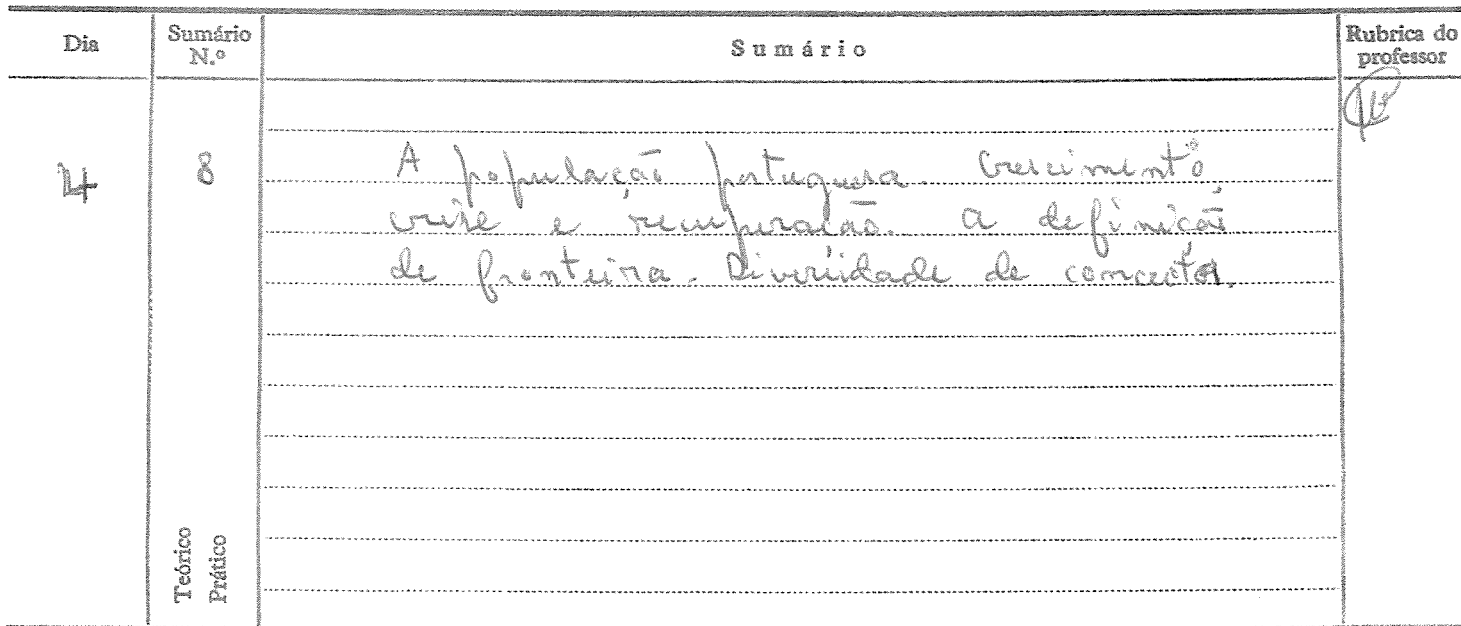 Dia Sumário N.º Sumário Rubrica do professor
8 A população portuguesa. Crescimento,
crise e recuperação. A definição
de fronteira. Diversidade de conceitos.
Teórico
Prático